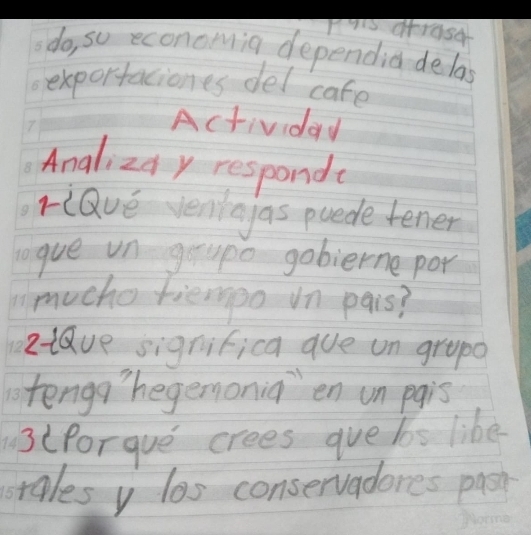 país atrasa
do, su economia dependia de las
exportaciones del cafe
Actividad
Analiza y responde
1-¿Qué ventajas puede tener
que un grupo gobierne por
mucho tiempo un pais?
2-¿Que significa que un grupo
tenga "hegemonia" en un pais
3¿Porqué crees que los libe-
rales y los conservadores pasa
Norma